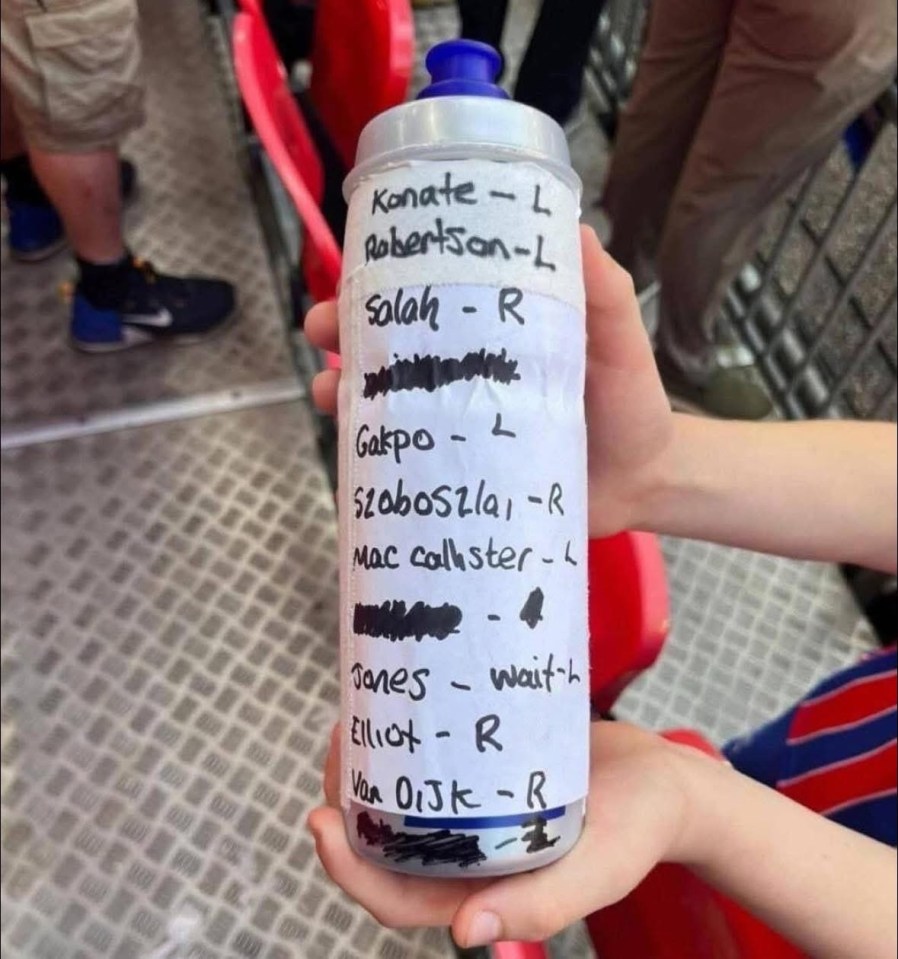 Konate - L
Robertson - L
Salah - R
Gakpo - L
Szoboszlai - R
Mac callister - L
Jones - wait - L
Elliot - R
Van DiJk - R